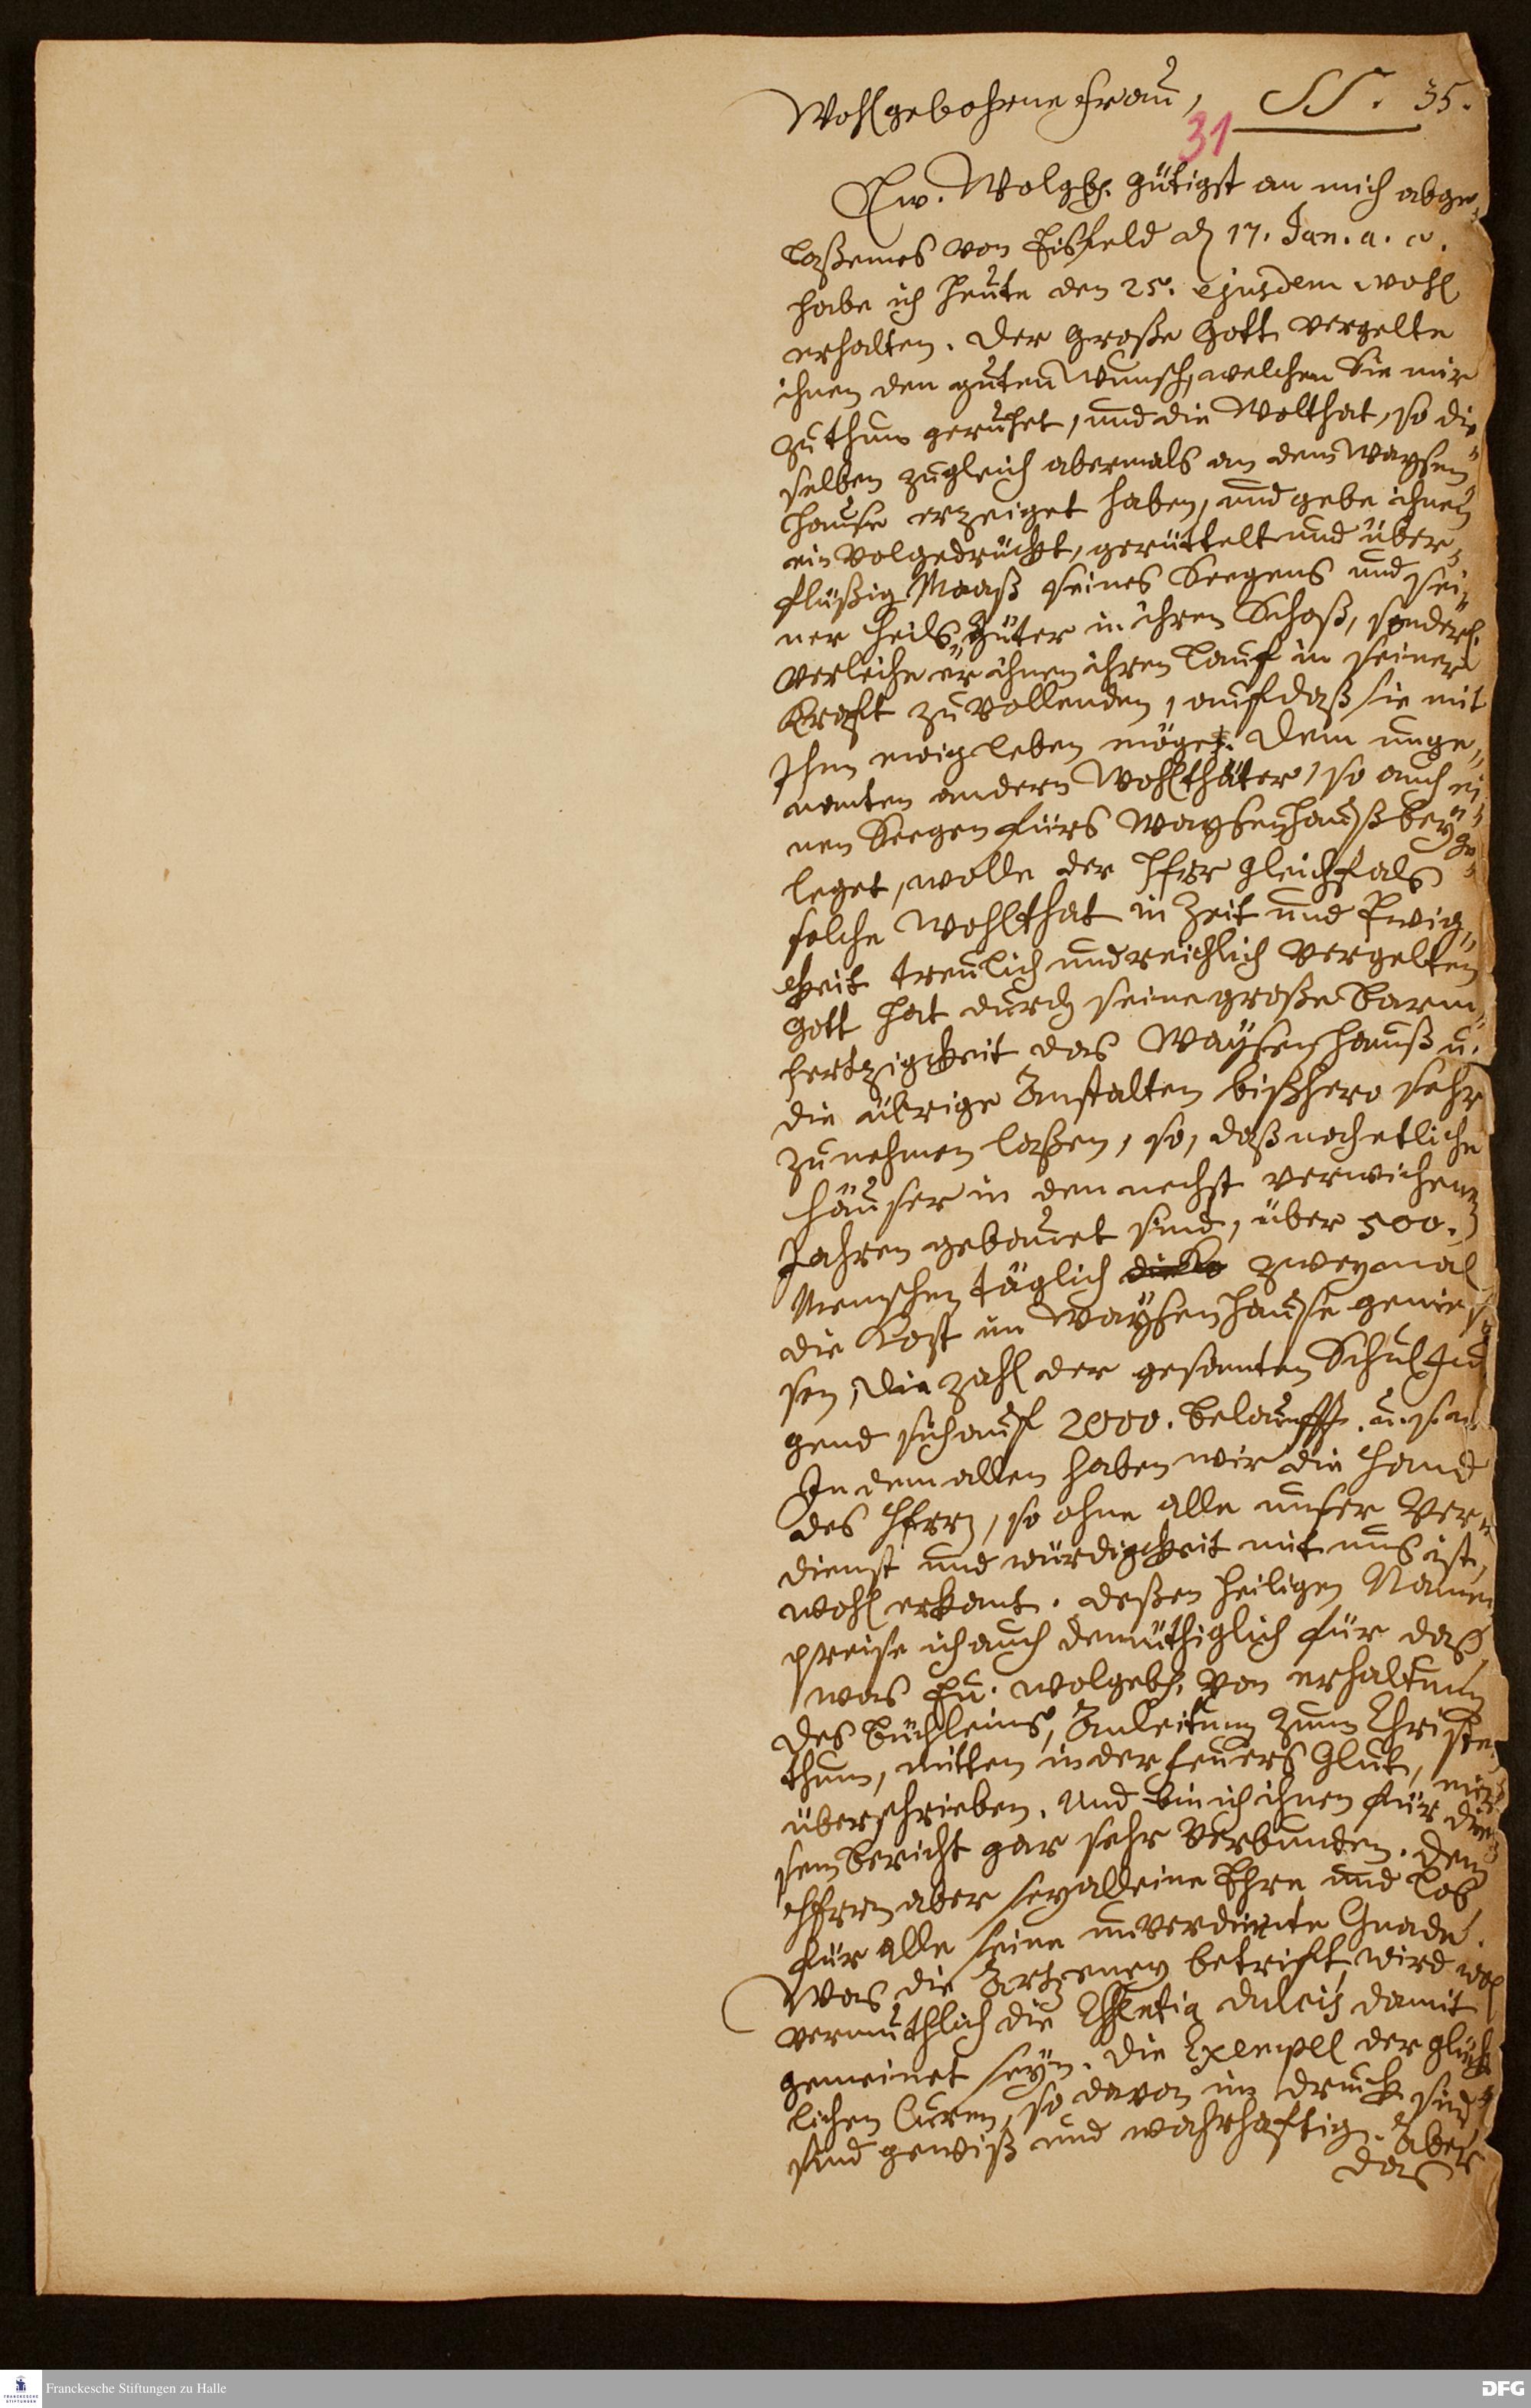 Wohlgebohrne Frau, SS. 35.
31
Ew. Wolgb. gütigst an mich abge-
laßenes von Eisfeld d. 17. Jan. a. c.
habe ich heute den 25. ejusdem wohl
erhalten. Der große Gott vergelte
ihnen den guten Wunsch, welchen Sie mir
zuthun geruhet, und die Wolthat, so die-
selben zugleich abermals an dem Waysen-
hause erzeiget haben, und gebe ihnen
ein volgedrückt, gerüttelt und über-
flüßig Maaß seines Seegens und sei-
ner Heils-Güter in ihren Schoß, sonderl.
verleihe er ihnen ihren Lauf in seiner
Krafft zu vollenden, auf daß sie mit
Ihm ewig leben möge. Dem unge-
nanten andern Wohlthäter, so auch ei-
nen Seegen fürs Waysenhauß beyge-
leget, wolle der HErr gleichfals
solche Wohlthat in Zeit und Ewig-
keit treulich und reichlich vergelten
Gott hat durch seine große Barm-
hertzigkeit das Waysenhauß u.
die übrige Anstalten bißhero sehr
zunehmen laßen, so, daß noch etliche
Häuser in den nechst verwichenen
Jahren gebauet sind, über 500.
Menschen täglich zweymal
die Kost im Waysenhause genies-
sen, die Zahl der gesamten Schul Ju-
gend sich auf 2000. belaufft. u. s. w.
In dem allen haben wir die Hand
des HErrn, so ohne alle unser Ver-
dienst und würdigkeit mit uns ist,
wohl erkant. deßen heiligen Namen
preise ich auch demüthiglich für das,
was Eu. Wolgeb. von erhaltung
des Büchleins, Anleitung zum Christen-
thum, mitten in der Feuers Glut, mir
überschrieben. Und bin ich ihnen für die-
sen Bericht gar sehr verbunden. Dem
HErrn aber sey alleine Ehre und Lob
für alle seine unverdiente Gnade.
Was die Artzeney betrifft, wird wol
vermuthlich die Essentia dulcis damit
gemeinet seyn. Die Exempel der glück-
lichen Curen, so davon im druck sind,
sind gewiß und wahrhaftig. Aber
das
Franckesche Stiftungen zu Halle
FRANCKESCHE
STIFTUNGEN
DFG